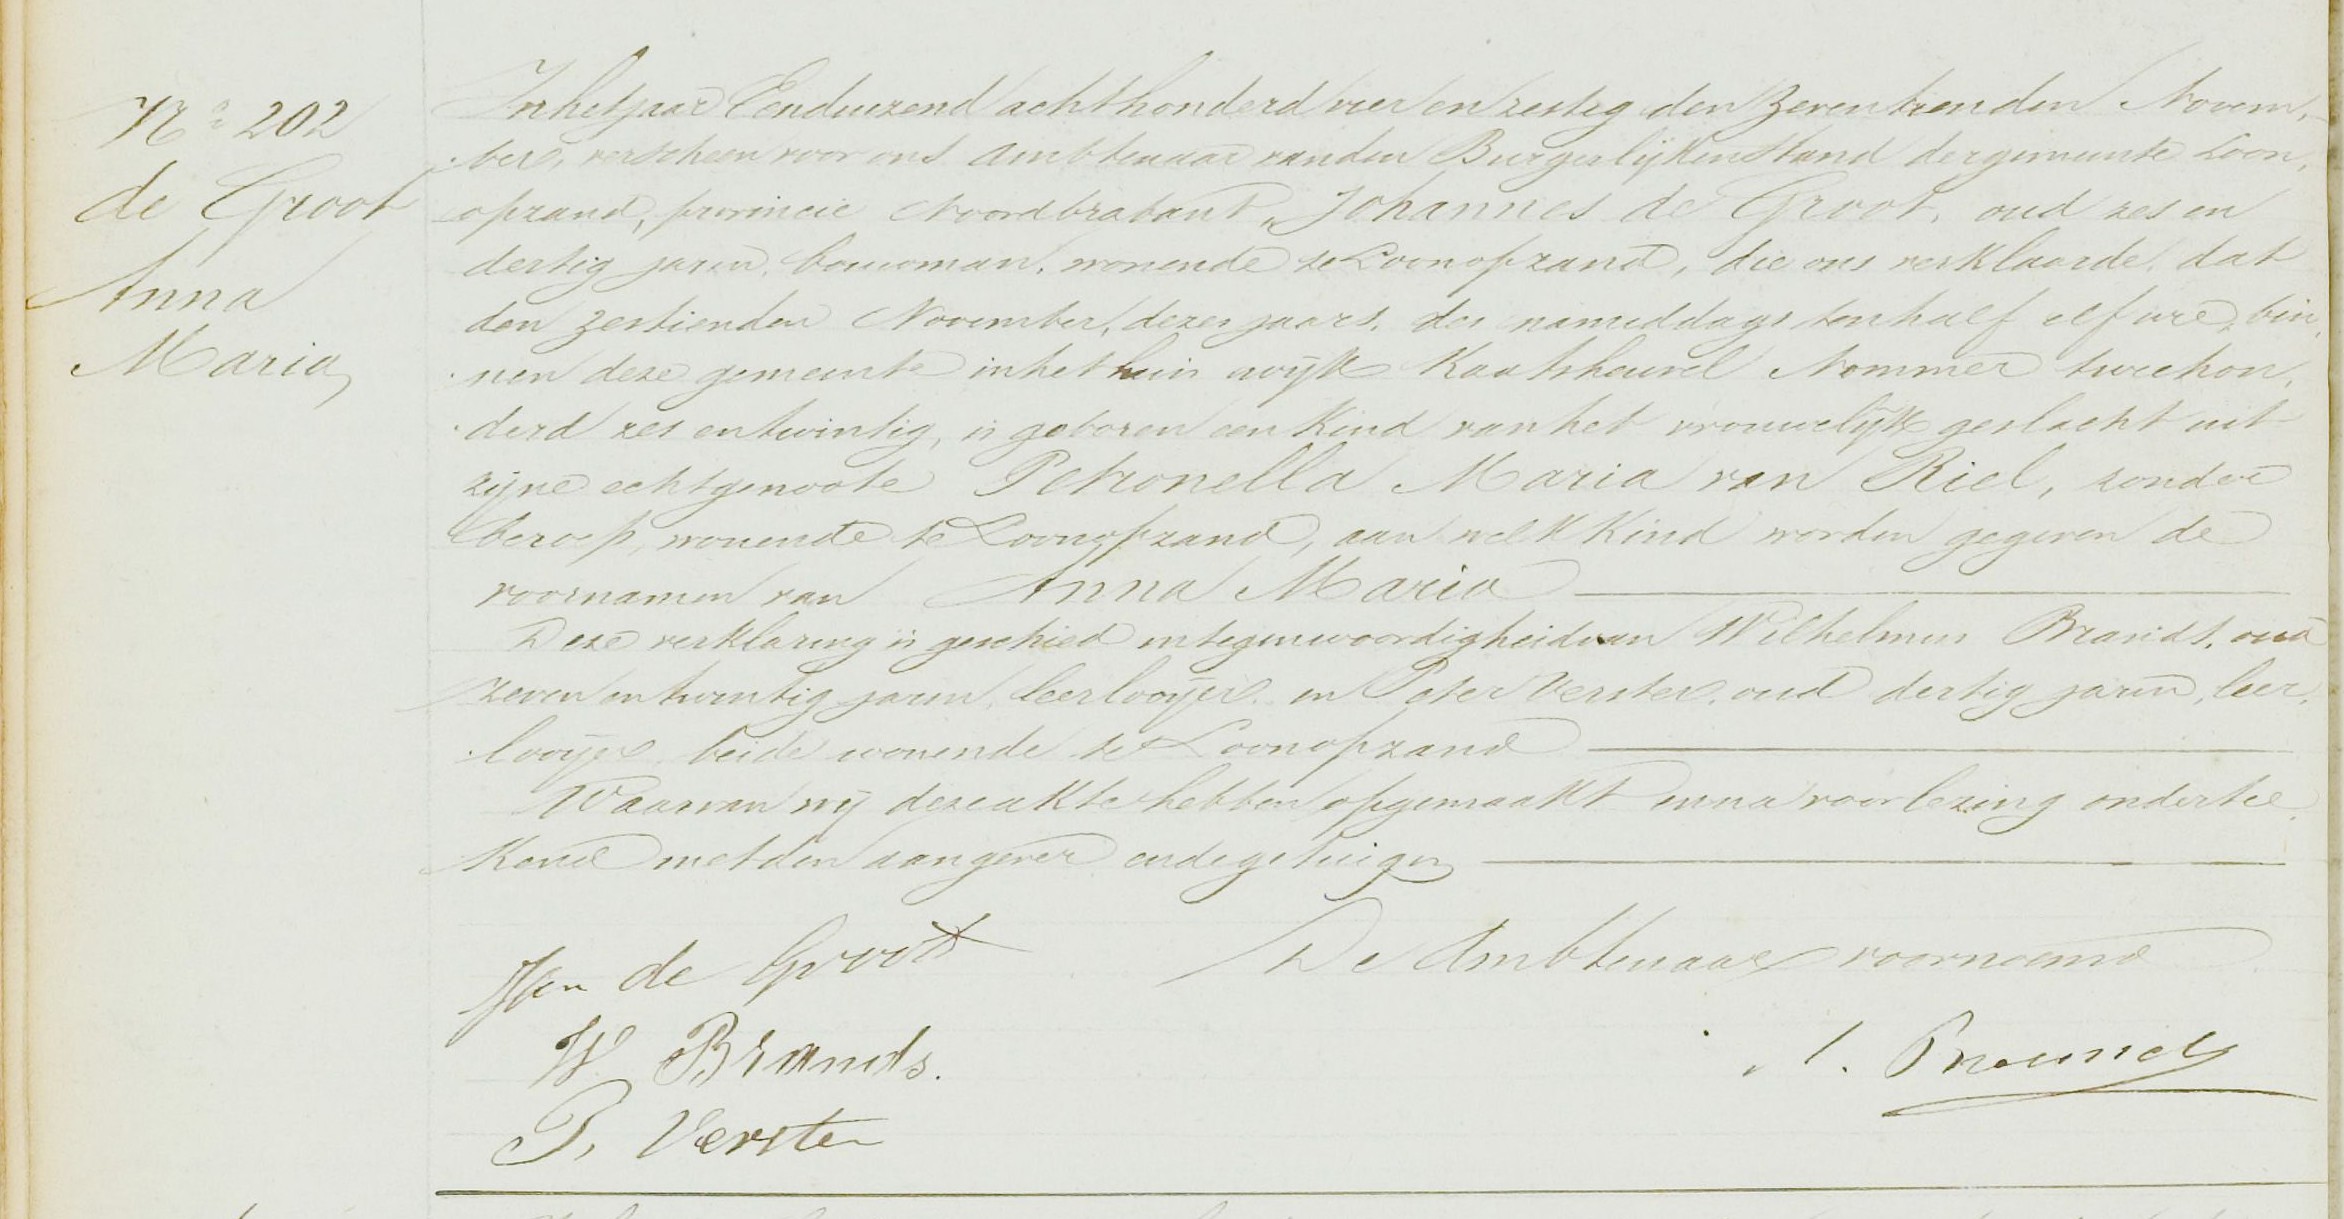 No 202
de Groot
Anna
Maria
In het jaar Eenduizend achthonderd vier en zestig den zeventienden Novem,
ber, verscheen voor ons Ambtenaar van den Burgerlijken Stand der gemeente Loon,
opzand, provincie Noordbrabant, Johannes de Groot, oud zes en
dertig jaren, bouwman, wonende te Loonopzand, die ons verklaarde, dat
den zestienden November, dezes jaars, des namiddags ten half elf ure, bin,
nen deze gemeente in het huis wijk Kaatsheuvel Nommer tweehon,
derd zes en twintig, is geboren een kind van het vrouwelijk geslacht uit
zijne echtgenoote Petronella Maria van Riel, zonder
beroep, wonende te Loonopzand, aan welk kind worden gegeven de
voornamen van Anna Maria
Deze verklaring is geschied in tegenwoordigheid van Wilhelmus Brands, oud
zeven en twintig jaren, leerlooijer en Peter Verster, oud dertig jaren, leer,
looijer, beide wonende te Loonopzand
Waarvan wij deze akte hebben opgemaakt en na voorlezing onderte,
kend met den aangever en de getuigen
Jan de Groot
De Ambtenaar voornoemd
W Brands.
P. Verster